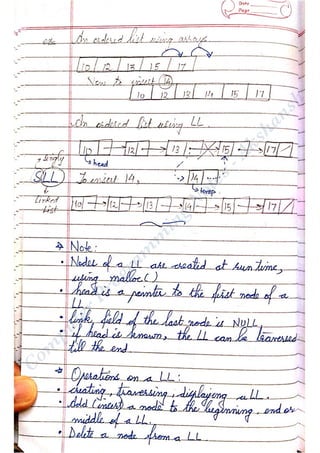 Date
Page
ex: An ordered list using arrays.
10 12 13 15 17
Now to insert 14
10 12 13 14 15 17
An ordered list using LL.
10 12 13 15 17
head
Singly
SLL
Linked
List
To insert 14,
14
temp
10 12 13 14 15 17
Note:
• Nodes of a LL are created at run time,
using malloc()
• head is a pointer to the first node of a
LL.
• link field of the last node is NULL
• if head is known, the LL can be traversed
till the end.
Operations on a LL:
• creating, traversing, displaying a LL.
• Add (insert) a node to the beginning, end or
middle of a LL.
• Delete a node from a LL.